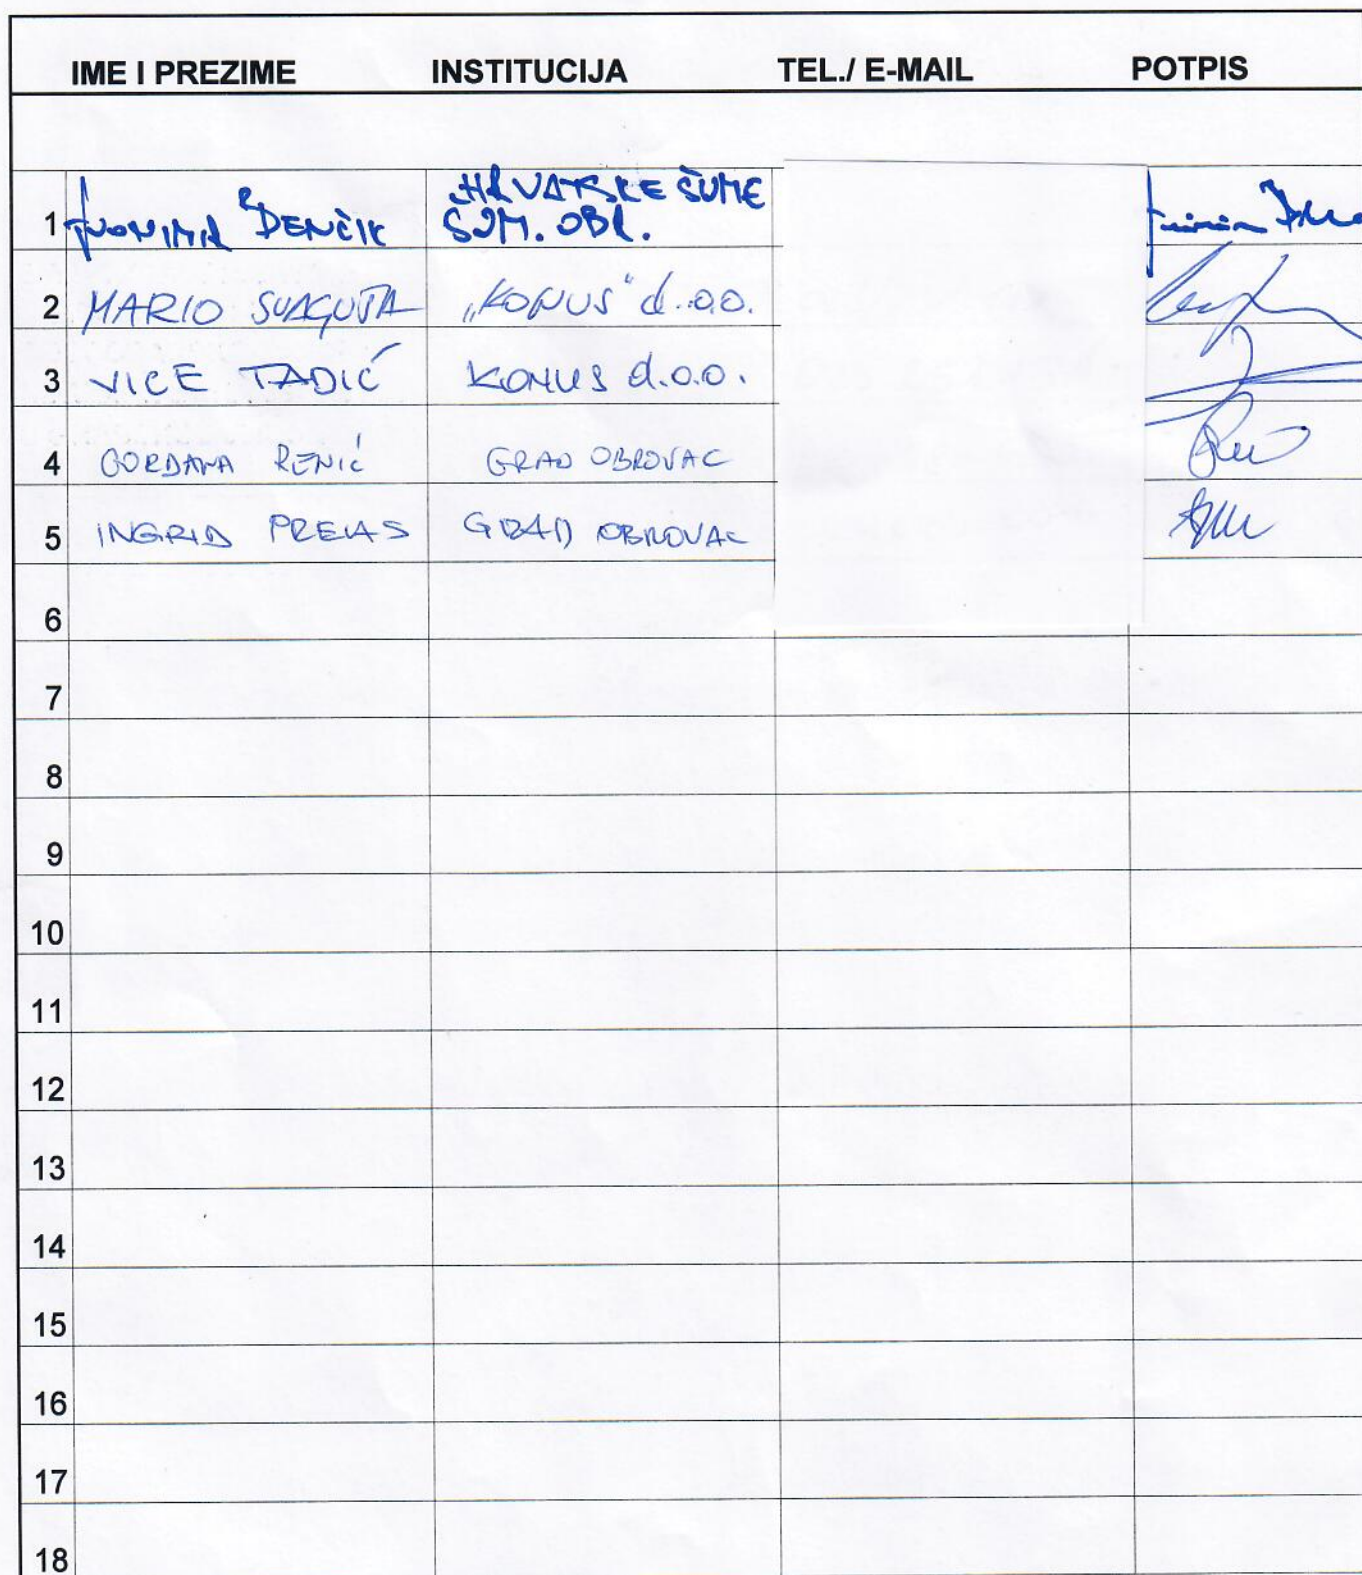 IME I PREZIME INSTITUCIJA TEL./ E-MAIL POTPIS
1 HRVATSKE ŠUME
ŠUM. OBR.
2 MARIO „KONUS" d.o.o.
3 VICE TADIĆ KONUS d.o.o.
4 GORDANA RENIĆ GRAD OBROVAC
5 INGRID PRELAS GRAD OBROVAC
6
7
8
9
10
11
12
13
14
15
16
17
18